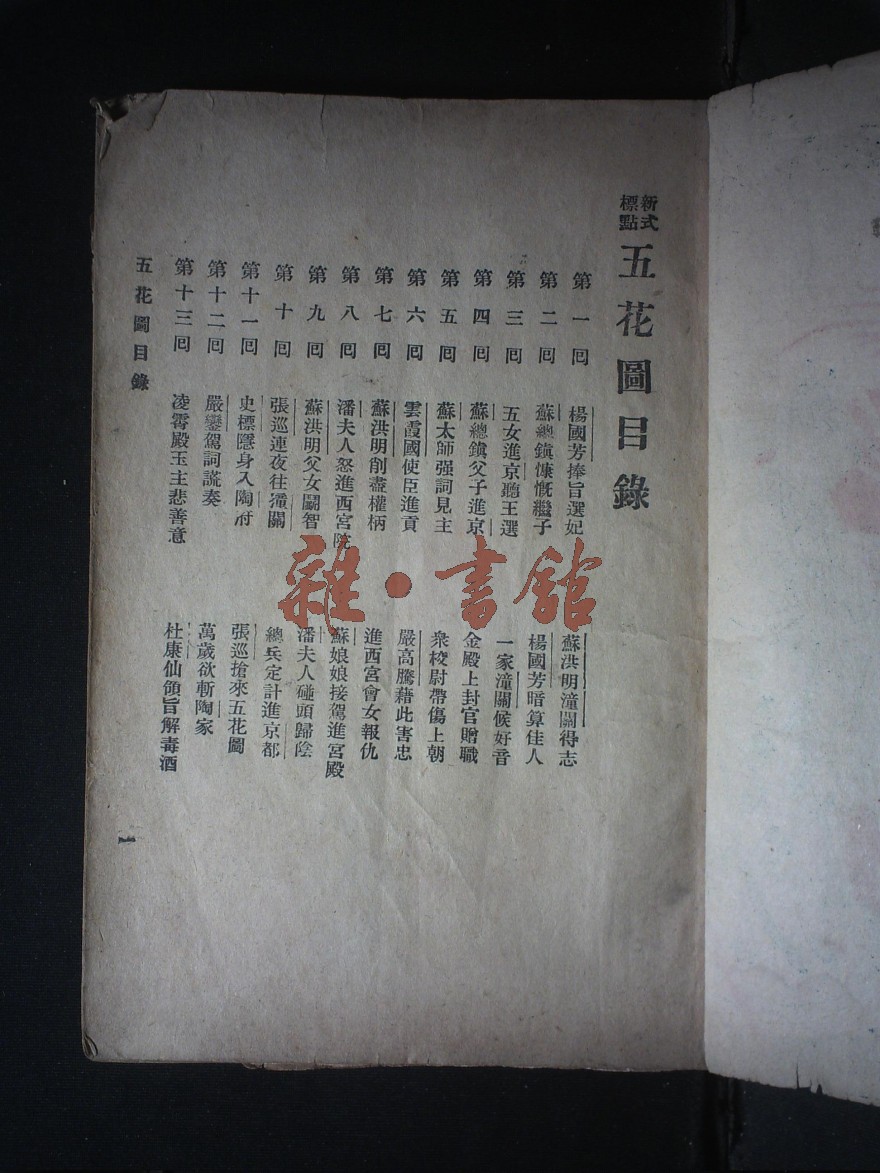 新式標點 五花圖目錄
第一囘 楊國芳捧旨選妃 蘇洪明潼關得志
第二囘 蘇總鎭慷慨繼子 楊國芳暗算佳人
第三囘 五女進京聽王選 一家潼關候好音
第四囘 蘇總鎭父子進京 金殿上封官贈職
第五囘 蘇太師强詞見主 衆校尉帶傷上朝
第六囘 雲霞國使臣進貢 嚴高騰藉此害忠
第七囘 蘇洪明削盡權柄 進西宮會女報仇
第八囘 潘夫人怒進西宮院 蘇娘娘接駕進宮殿
第九囘 蘇洪明父女鬭智 潘夫人碰頭歸陰
第十囘 張巡連夜往潼關 總兵定計進京都
第十一囘 史標隱身入陶府 張巡搶來五花圖
第十二囘 嚴鑾駕詞謊奏 萬歲欲斬陶家
第十三囘 凌霄殿玉主悲善意 杜康仙領旨解毒酒
五花圖目錄
一
雜·書館